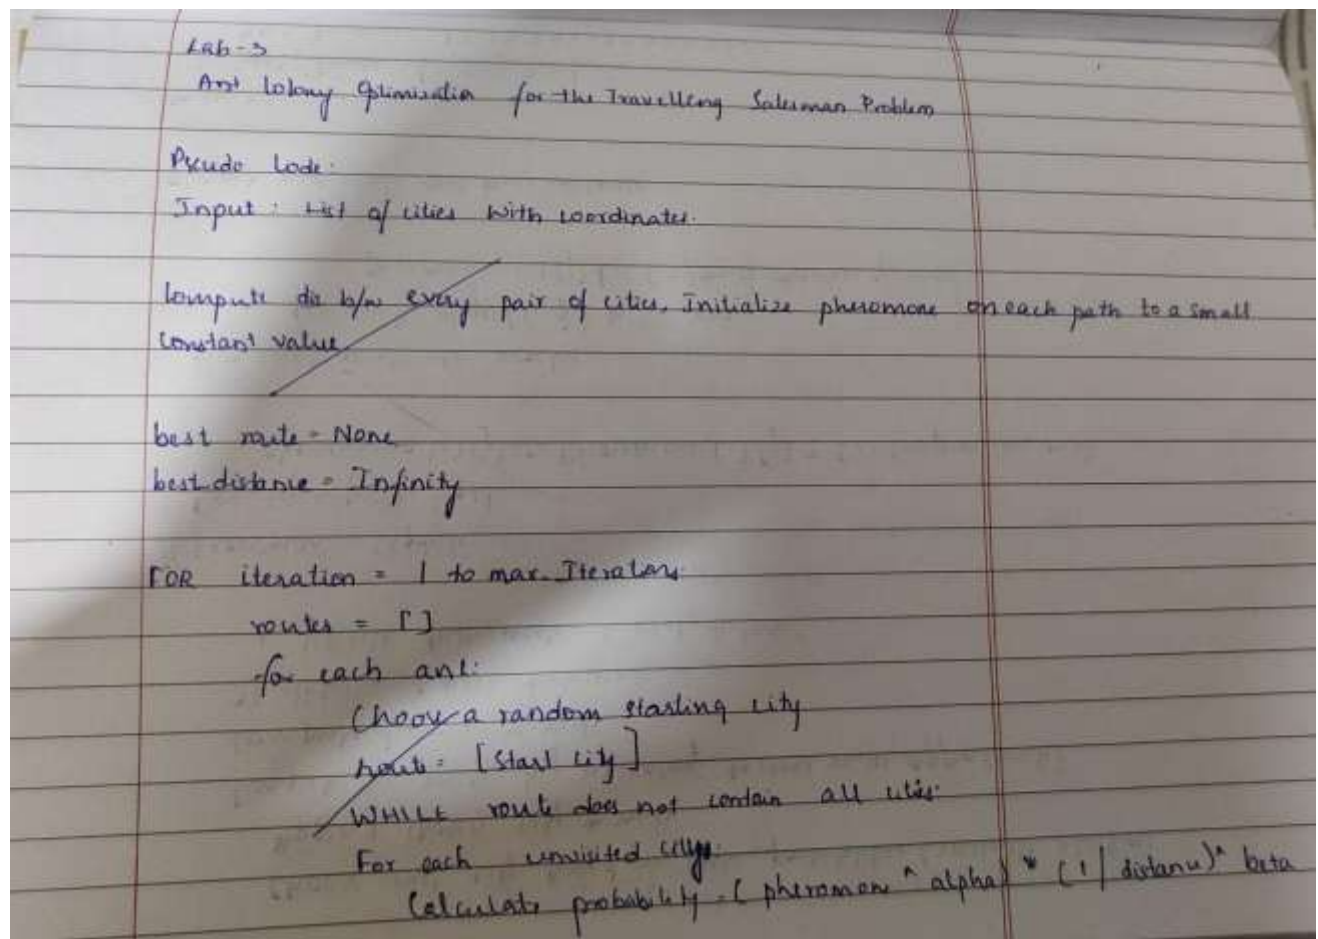 Lab-3
Ant Colony Optimization for the Travelling Salesman Problem
Pseudo Code:
Input: List of cities with coordinates.
Compute dis b/w every pair of cities, Initialize pheromone on each path to a small
constant value
best route = None
best distance = Infinity
FOR iteration = 1 to max-Iterations
routes = []
for each ant:
Choose a random starting city
route = [Start city]
WHILE route does not contain all cities:
For each unvisited city:
Calculate probability = (pheromone ^ alpha) * (1 / distance)^ beta